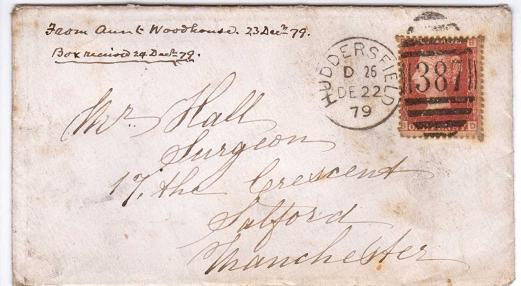 From Aunt Woodhouse. 23 Decr. 79.
Box received 24 Decr. 79.
HUDDERSFIELD
D 26
DE 22
79
387
Mr. Hall
Surgeon
17, the Crescent
Salford
Manchester